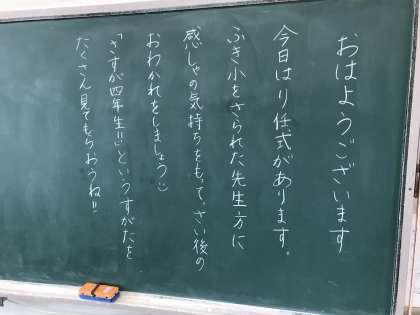 おはようございます
今日はり任式があります。
ふき小をさられた先生方に
感しゃの気持ちをもって、さい後の
おわかれをしましょう:)
「さすが四年生!!」というすがたを
たくさん見てもらおうね!!